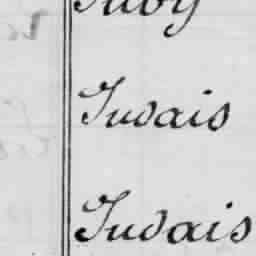 Judais
Judais